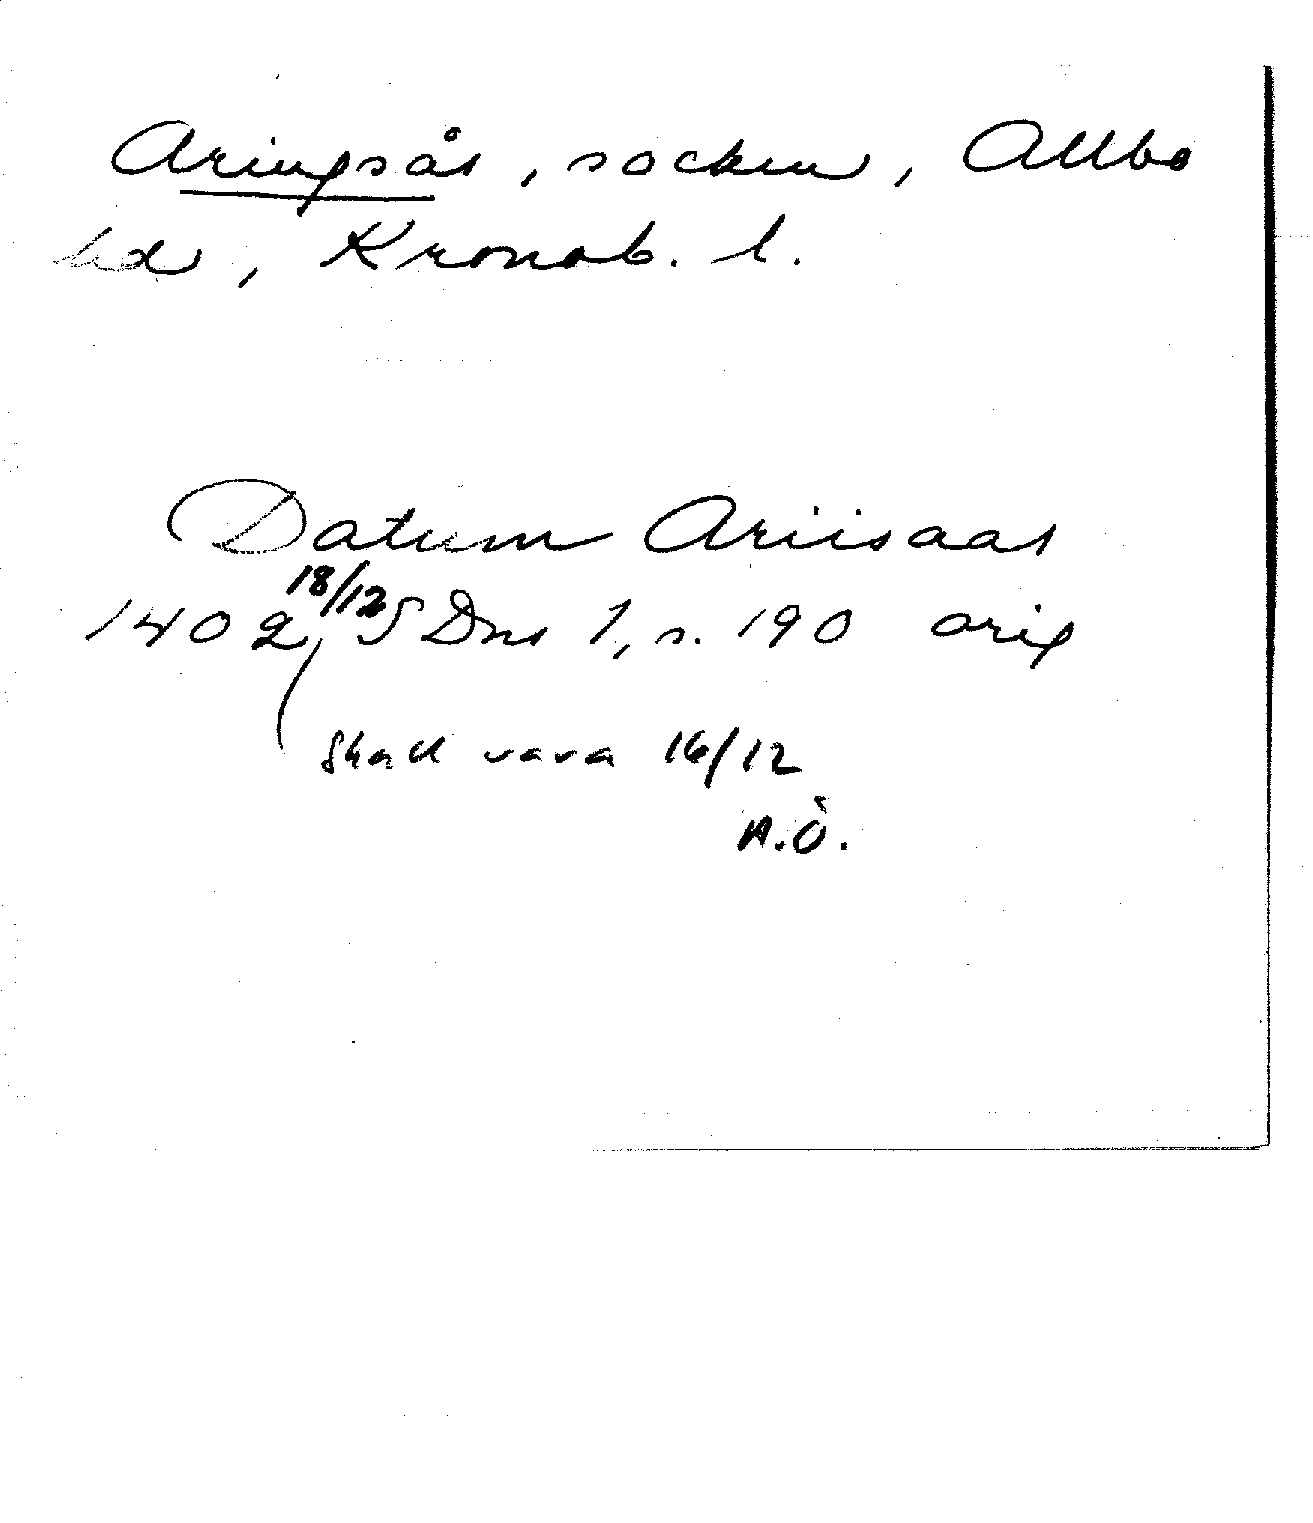 Aringsås, socken, Allbo
hd, Kronob. l.
Datum Ariisaas
1402 18/12 SDns 1, s. 190 orig
Skall vara 16/12
A.Ö.